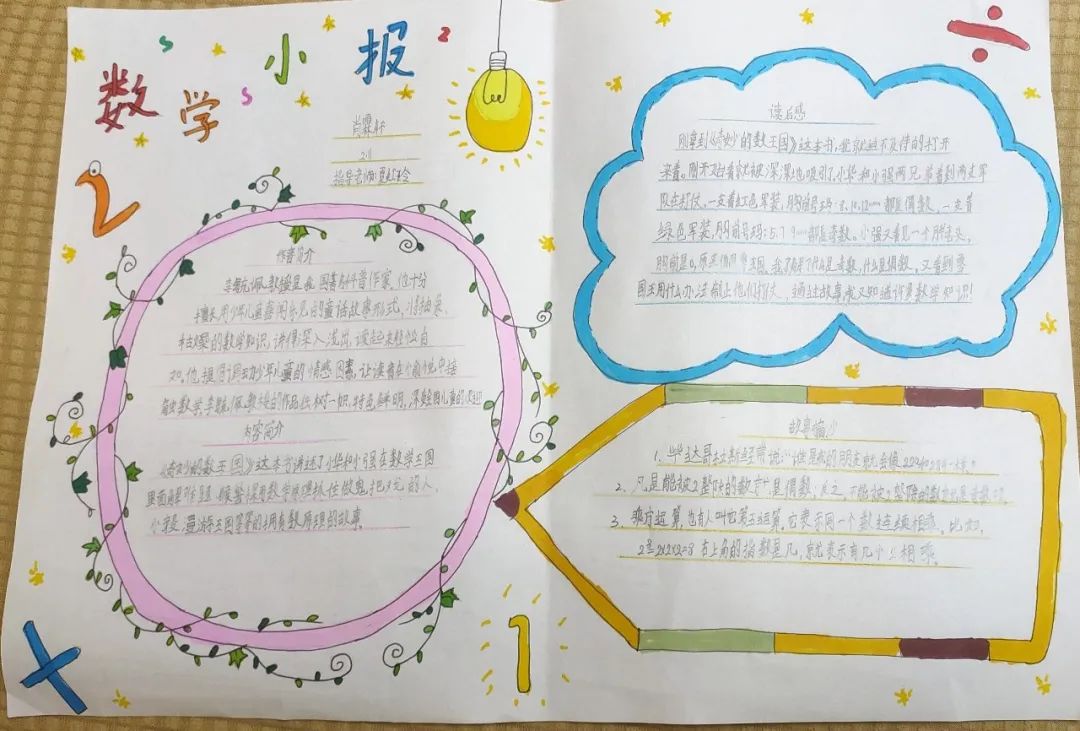 数学小报
肖霖轩
211
指导老师:夏红玲
作者简介
李毓佩,教授是我国著名科普作家,他十分
擅长用少年儿童喜闻乐见的童话故事形式,将抽象、
枯燥的数学知识,讲得深入浅出,读起来轻松自
如。他擅于调动少年儿童的情感因素,让读者在愉悦中接
触数学李毓佩教授的作品独树一帜,特色鲜明,深受
内容简介
《奇妙的数王国》这本书讲述了小华和小强在数学王国
里面解难题
小 王国 的拥有数原理的故事。
读后感
刚拿到《奇妙的数王国》这本书,我就迫不及待的打开
来看。刚开始看就被深深地吸引了,小华和小强两兄弟看到两支军
队在打仗,一支着红色军装,胸前号码:8、10、12……都是偶数,一支着
绿色军装,胸前号码:5.7 9……都是奇数。小强又看见一个胖
胸前是0,原 ,我了解了什么是奇数,什么是偶数,又看到零
国王用什么办法制止他们打仗,通过故事,我又知道许多数学知识!
故事
1、毕达哥拉斯经常说:“谁是我的朋友就会像220和284一样。”
2、凡是能被2整除的数 是偶数,反之,不能被2整除的数 是奇数
3、乘方运算,也有人叫它第五运算,它表示同一个数连续相乘。比如,
2³=2x2x2=8 右上角的指数是几,就表示有几个2相乘。
2
1
S
S
2